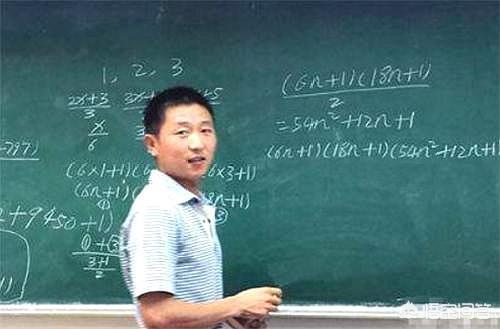 1, 2, 3
2x+3
3
x
6
3
-797)
(6×1+1)(6 6×3+1)
(6n+1)( ③
2+9450+1)
①+③
3+1
2
(6n+1)(18n+1)
2
=54n²+12n+1
(6n+1)(18n+1)(54n²+12n+1
悟空问答